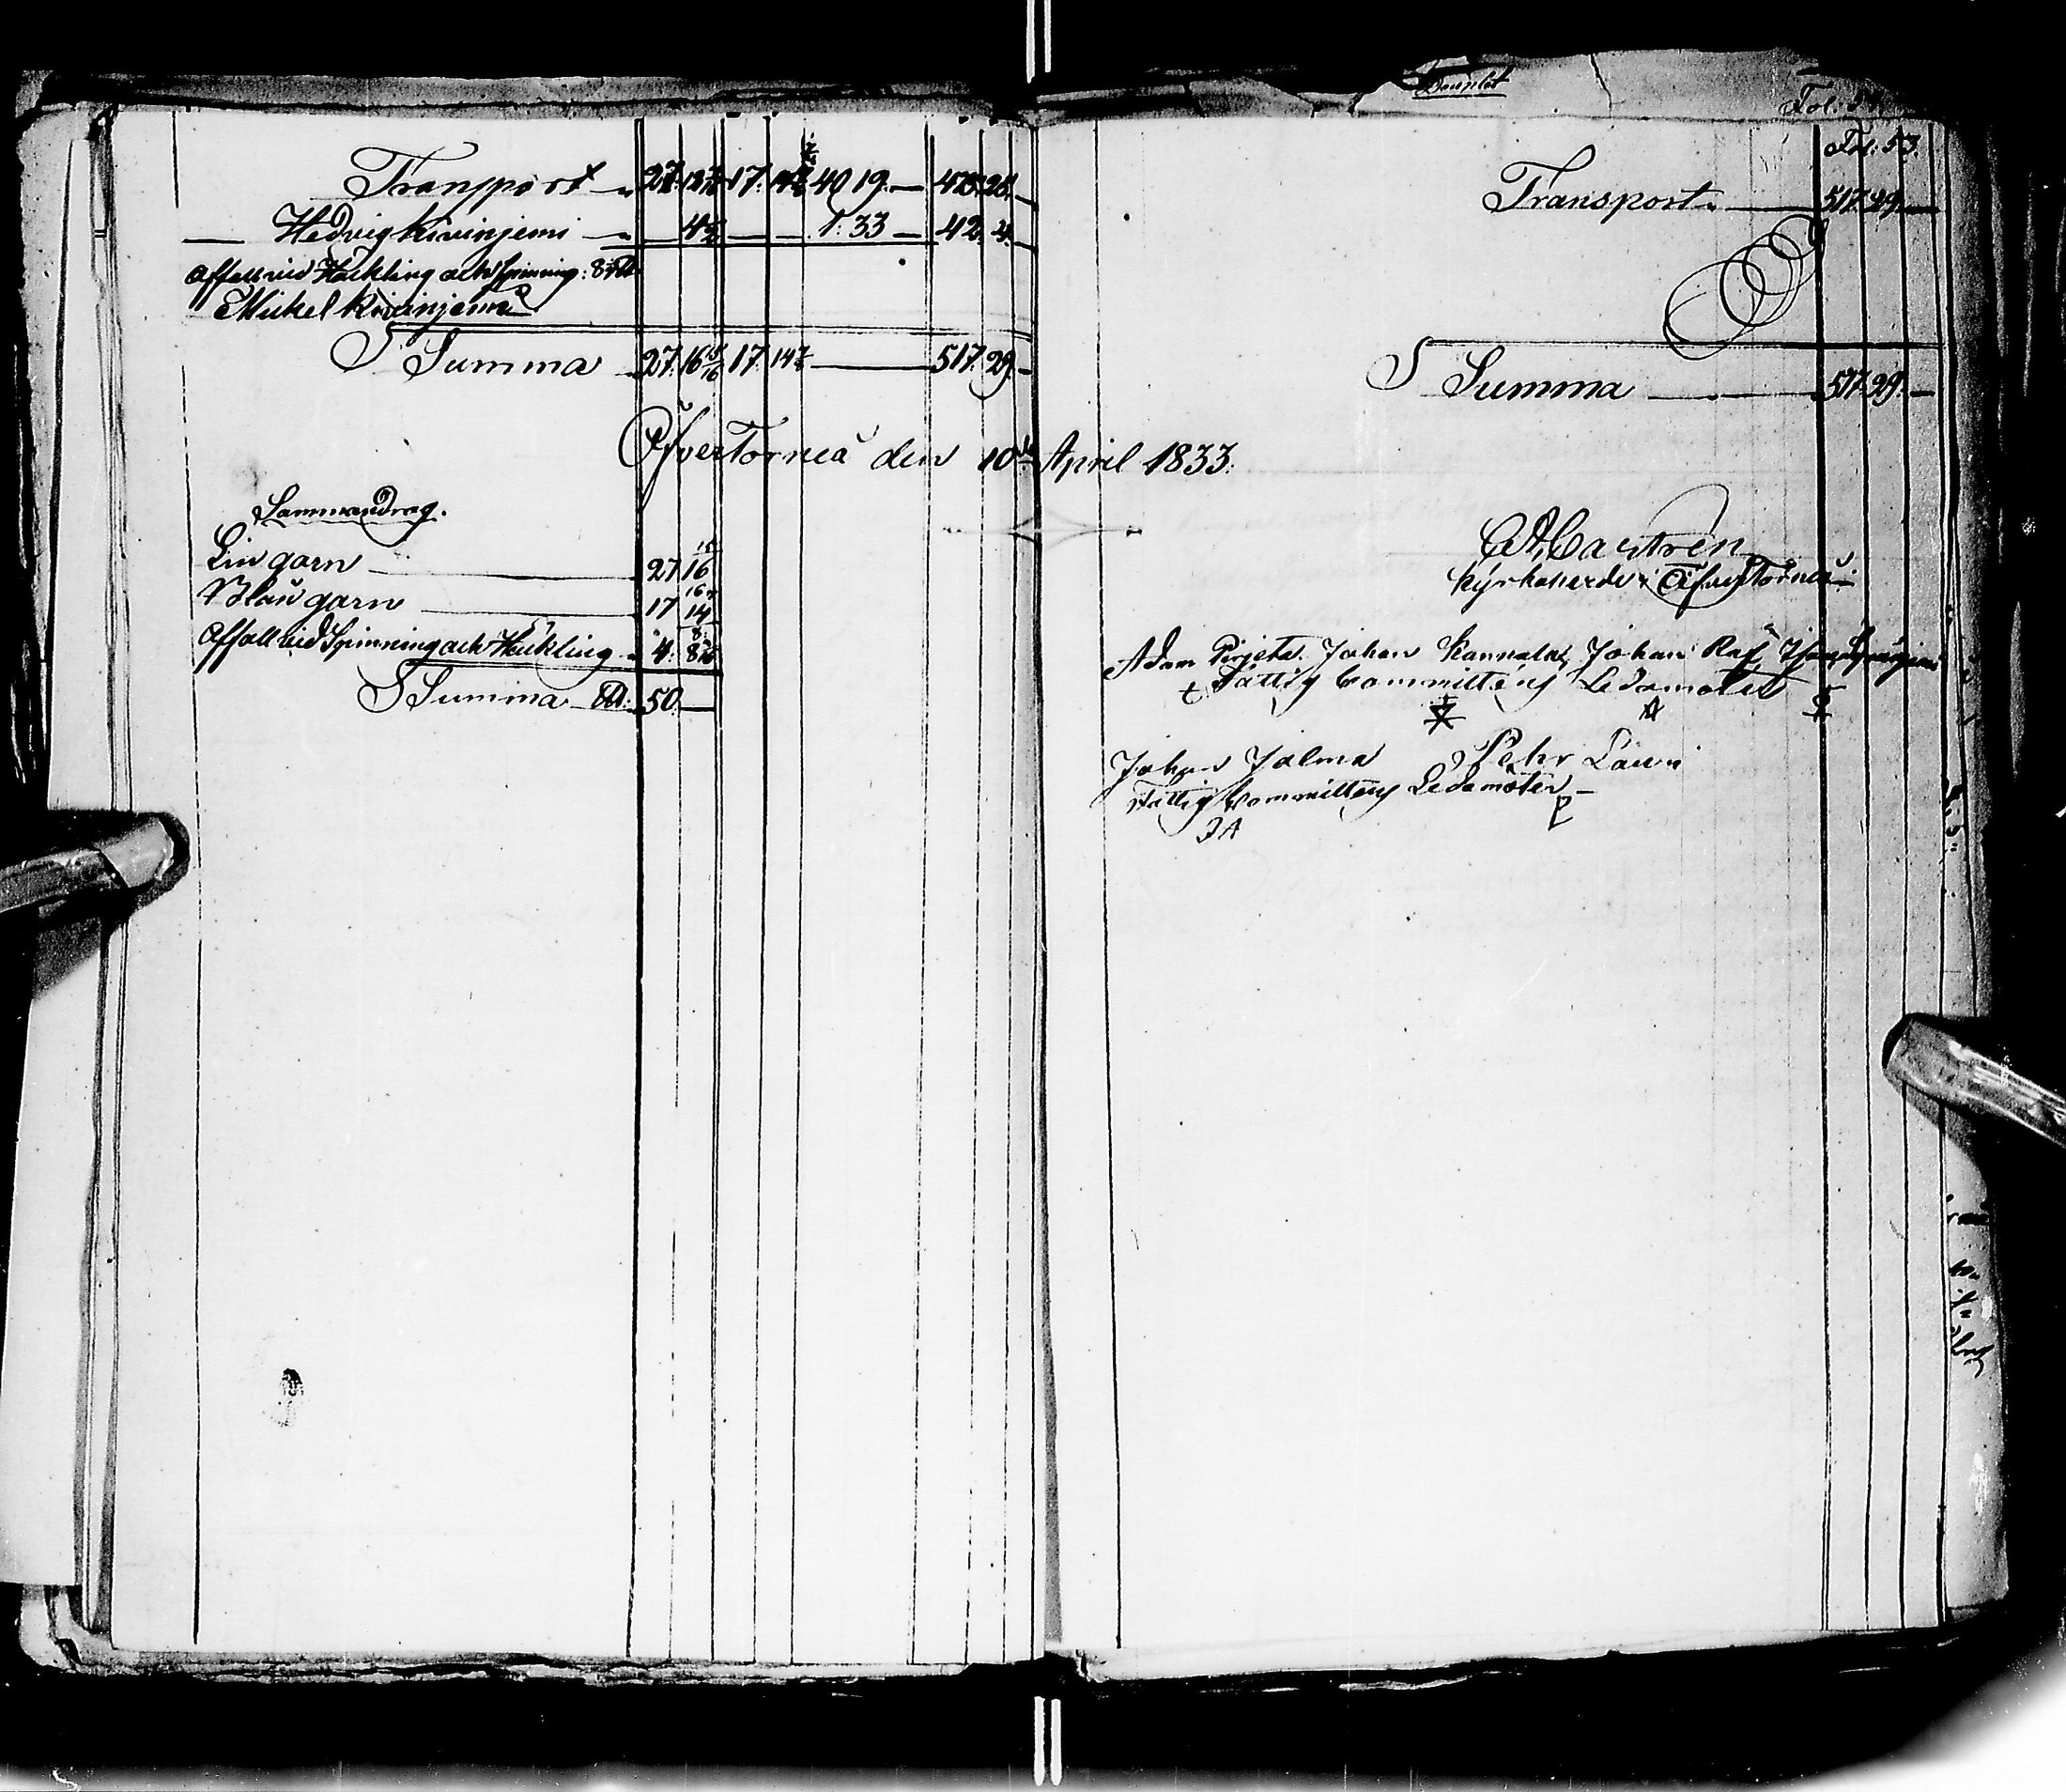 Transport 27. 12 17. 14 40 19. — 475. 25. —
Hedvig Kivinjemi 4 — — 1: 33 — 42. 4. —
Affall vid Häckling och Spinning: 8
Mickel Kivinjemi
Summa 27. 16 15/16 17. 14 — 517. 29. —
ÖfverTorneå den 10de April 1833.
Sammandrag.
Lin garn — 27 16
Blån garn — 17 14
Affall vid Spinning och Häckling 4. 8
Summa ℔. 50. —
Fol: 53.
Transport. — 517. 29. —
Summa — 517. 29. —
Castrén
Kyrkoherde i ÖfverTorneå.
Adam Pirjeta. Johan Kannala, Johan
Fattig Committens Ledamöter
Johan Jalma Pehr Lauri
Fattig Committens Ledamöter
JA